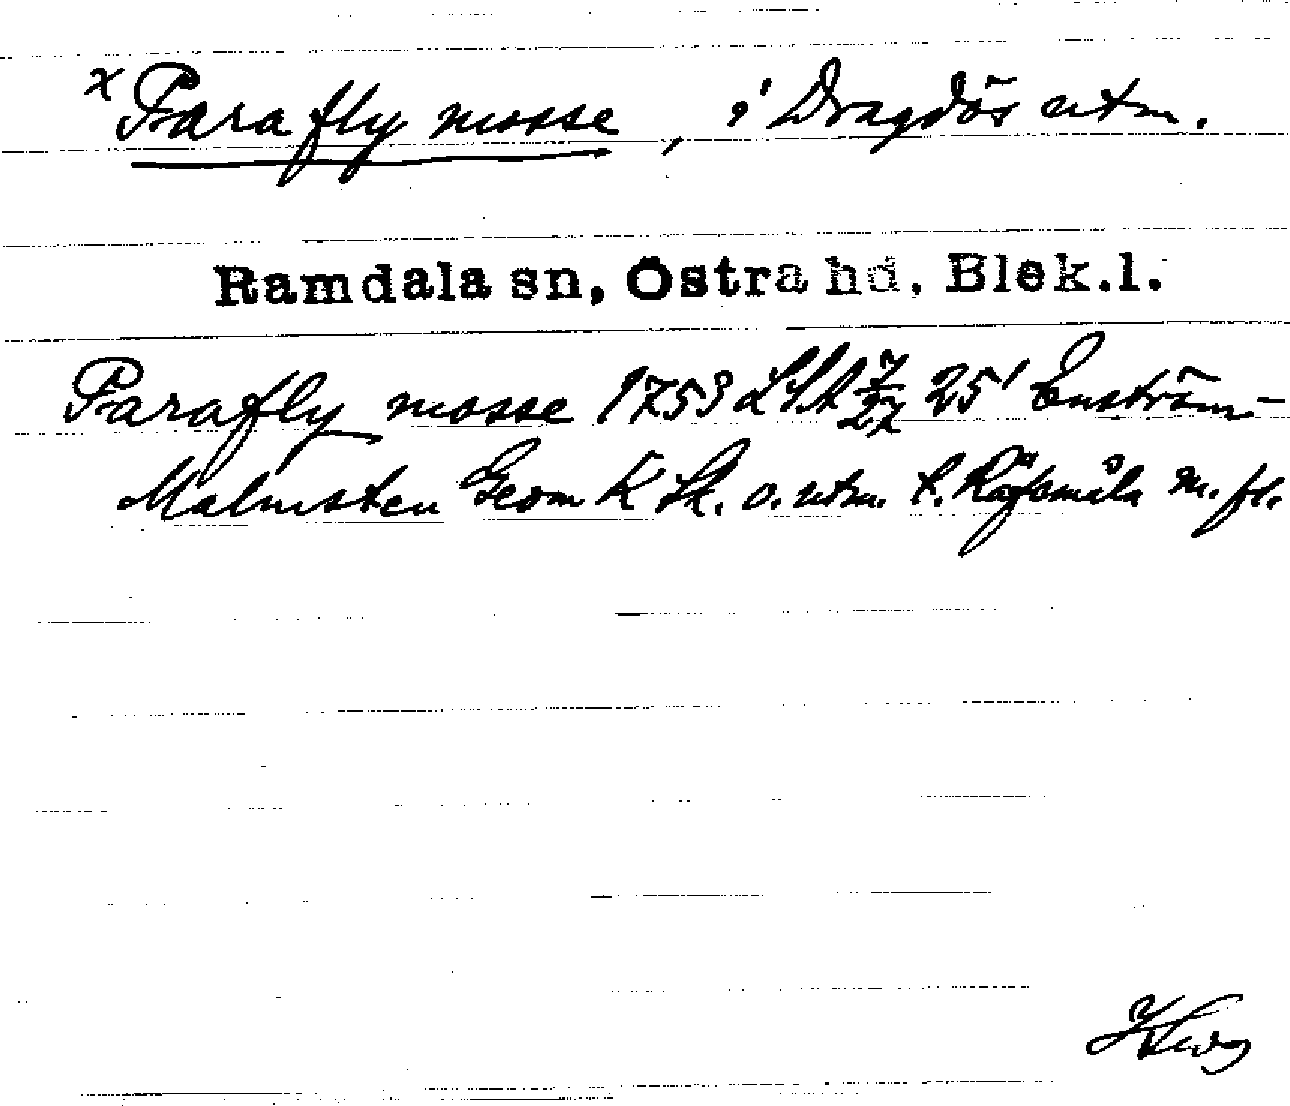 x Parafly mosse, i Dragdös utm.
Ramdala sn, Östra hd, Blek.l.
Parafly mosse 1753 LSA 25' Enström-
Malmsten Geom K Sk. o. utm. t. Räfsmåla m. fl.